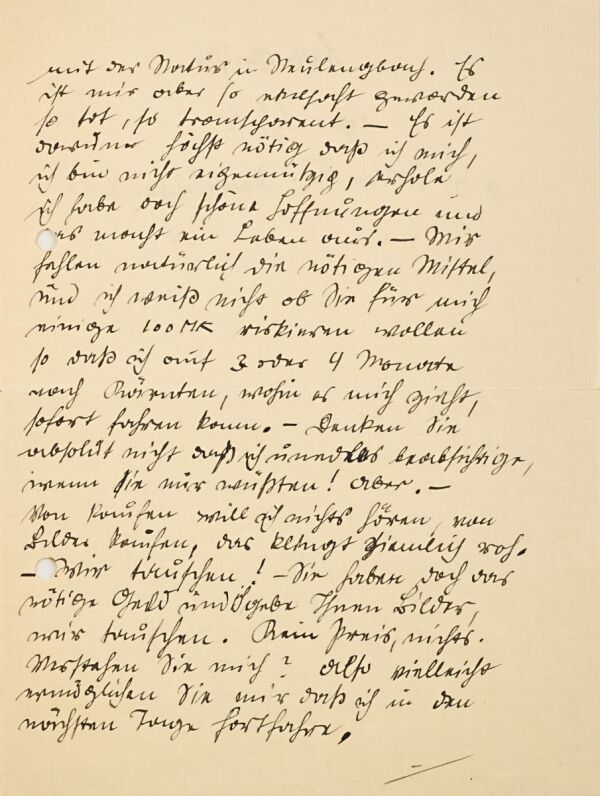 mit der Natur in Neulengbach. Es
ist mir aber so ekelhaft geworden
so tot, so transparent. — Es ist
darum höchst nötig daß ich mich,
ich bin nicht eigennützig, erhole
ich habe doch schöne Hoffnungen und
das macht ein Leben aus. — Mir
fehlen natürlich die nötigen Mittel,
und ich weiß nicht ob Sie für mich
einige 100 K riskieren wollen
so daß ich auf 3 oder 4 Monate
nach Kärnten, wohin es mich zieht,
sofort fahren kann. — Denken Sie
absolut nicht daß ich unedles beabsichtige,
wenn Sie nur wüßten! aber. —
Von Kaufen will ich nichts hören, von
Bilder kaufen, das klingt ziemlich roh.
— Wir tauschen! — Sie haben doch das
nötige Geld und ich gebe Ihnen Bilder,
wir tauschen. Kein Preis, nichts.
Verstehen Sie mich? also vielleicht
ermöglichen Sie mir daß ich in den
nächsten Tage fortfahre,